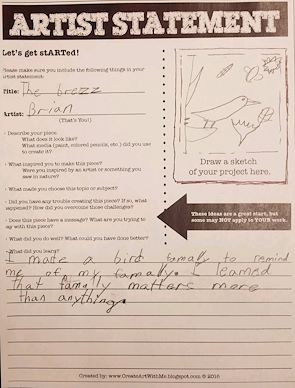 ARTIST STATEMENT
Let's get stARTed!
Please make sure you include the following things in your
artist statement:
Title: The brezz
Artist: Brian
(That's You!)
Describe your piece:
What does it look like?
What media (paint, colored pencils, etc.) did you use
to create it?
What inspired you to make this piece?
Were you inspired by an artist or something you
saw in nature?
What made you choose this topic or subject?
Did you have any trouble creating this piece? If so, what
happened? How did you overcome those challenges?
Does this piece have a message? What are you trying to
say with this piece?
What did you do well? What could you have done better?
What did you learn?
Draw a sketch
of your project here.
These ideas are a great start, but
some may NOT apply to YOUR work.
I made a bird famaly to remind
me of my famaly. I learned
that family matters more
than anything.
Created by: www.CreateArtWithMe.blogspot.com © 2016